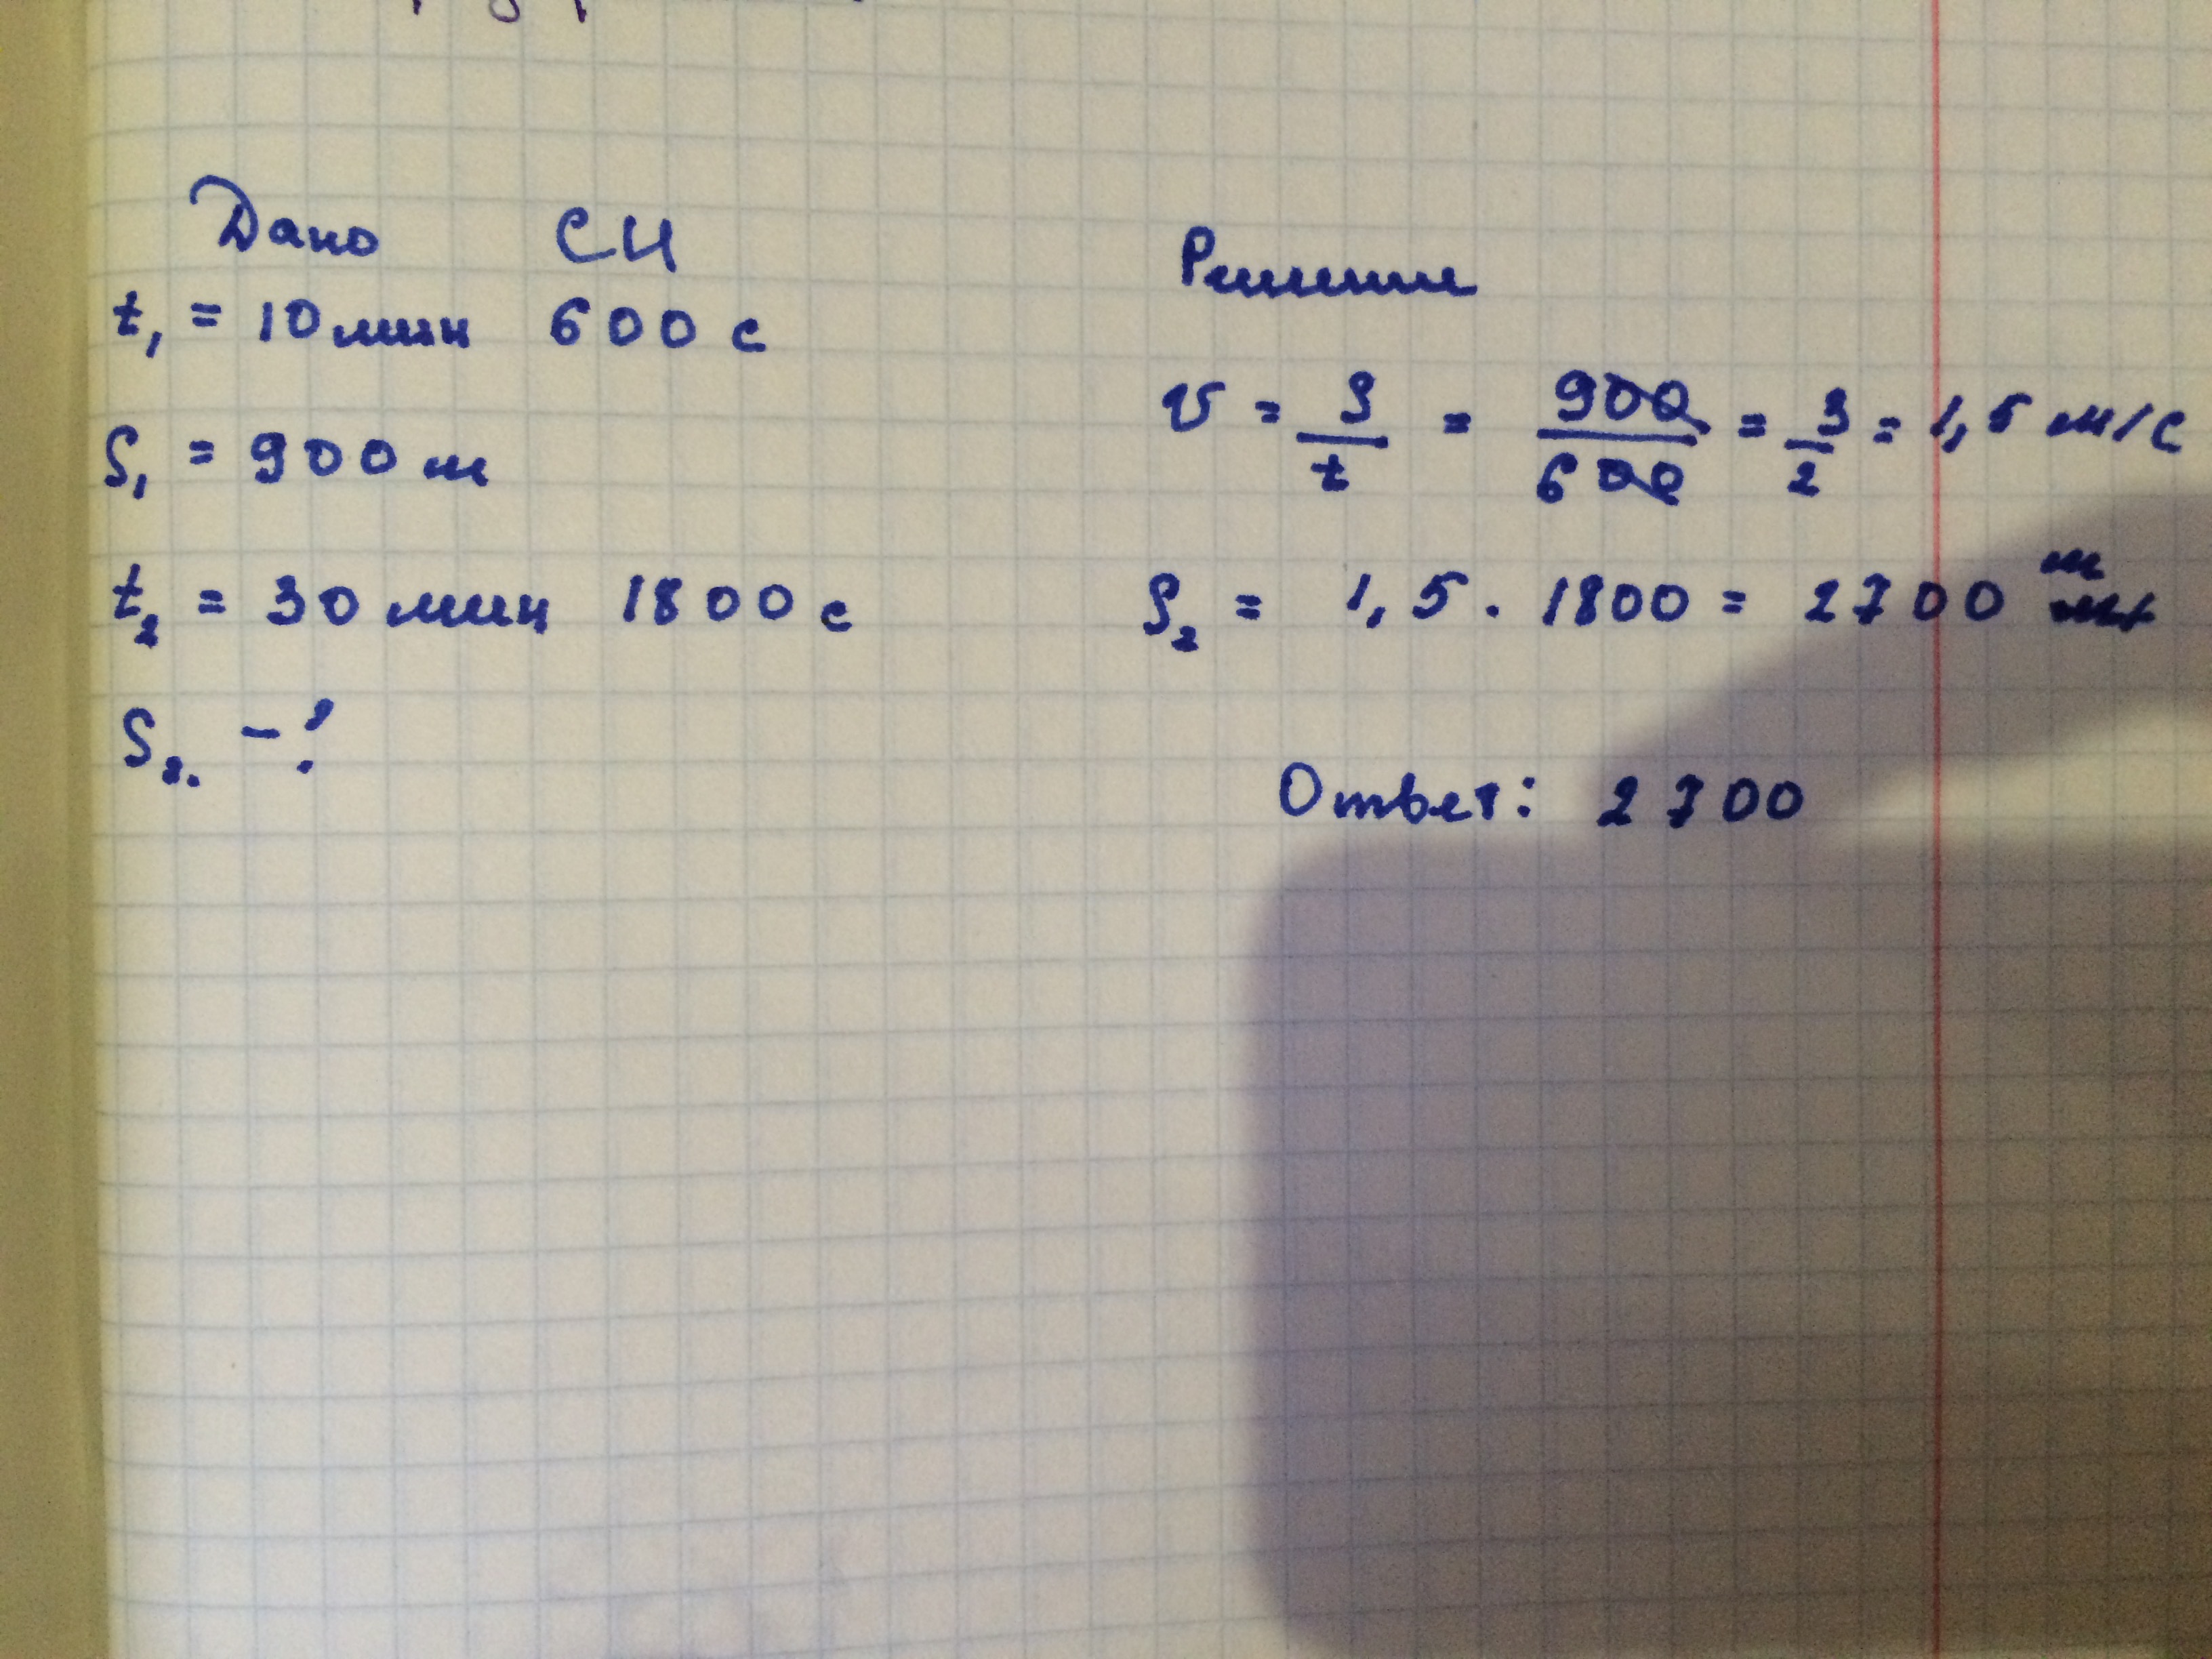 Дано СИ
t₁ = 10 мин 600 с
S₁ = 900 м
t₂ = 30 мин 1800 с
S₂. - ?
Решение
v = S/t = 900/600 = 3/2 = 1,5 м/с
S₂ = 1,5 · 1800 = 2700 м
Ответ: 2700